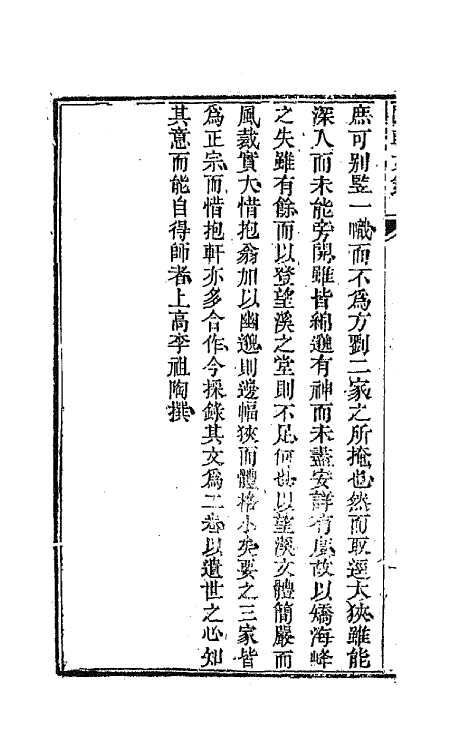 庶可别竪一幟而不爲方劉二家之所掩也然而取逕太狹雖能
深入而未能旁開雖皆綿邈有神而未盡安詳有度故以矯海峰
之失雖有餘而以登望溪之堂則不足何也以望溪文體簡嚴而
風裁實大惜抱翁加以幽邈則邊幅狹而體格小矣要之三家皆
爲正宗而惜抱軒亦多合作今採錄其文爲二卷以遺世之心知
其意而能自得師者上高李祖陶撰